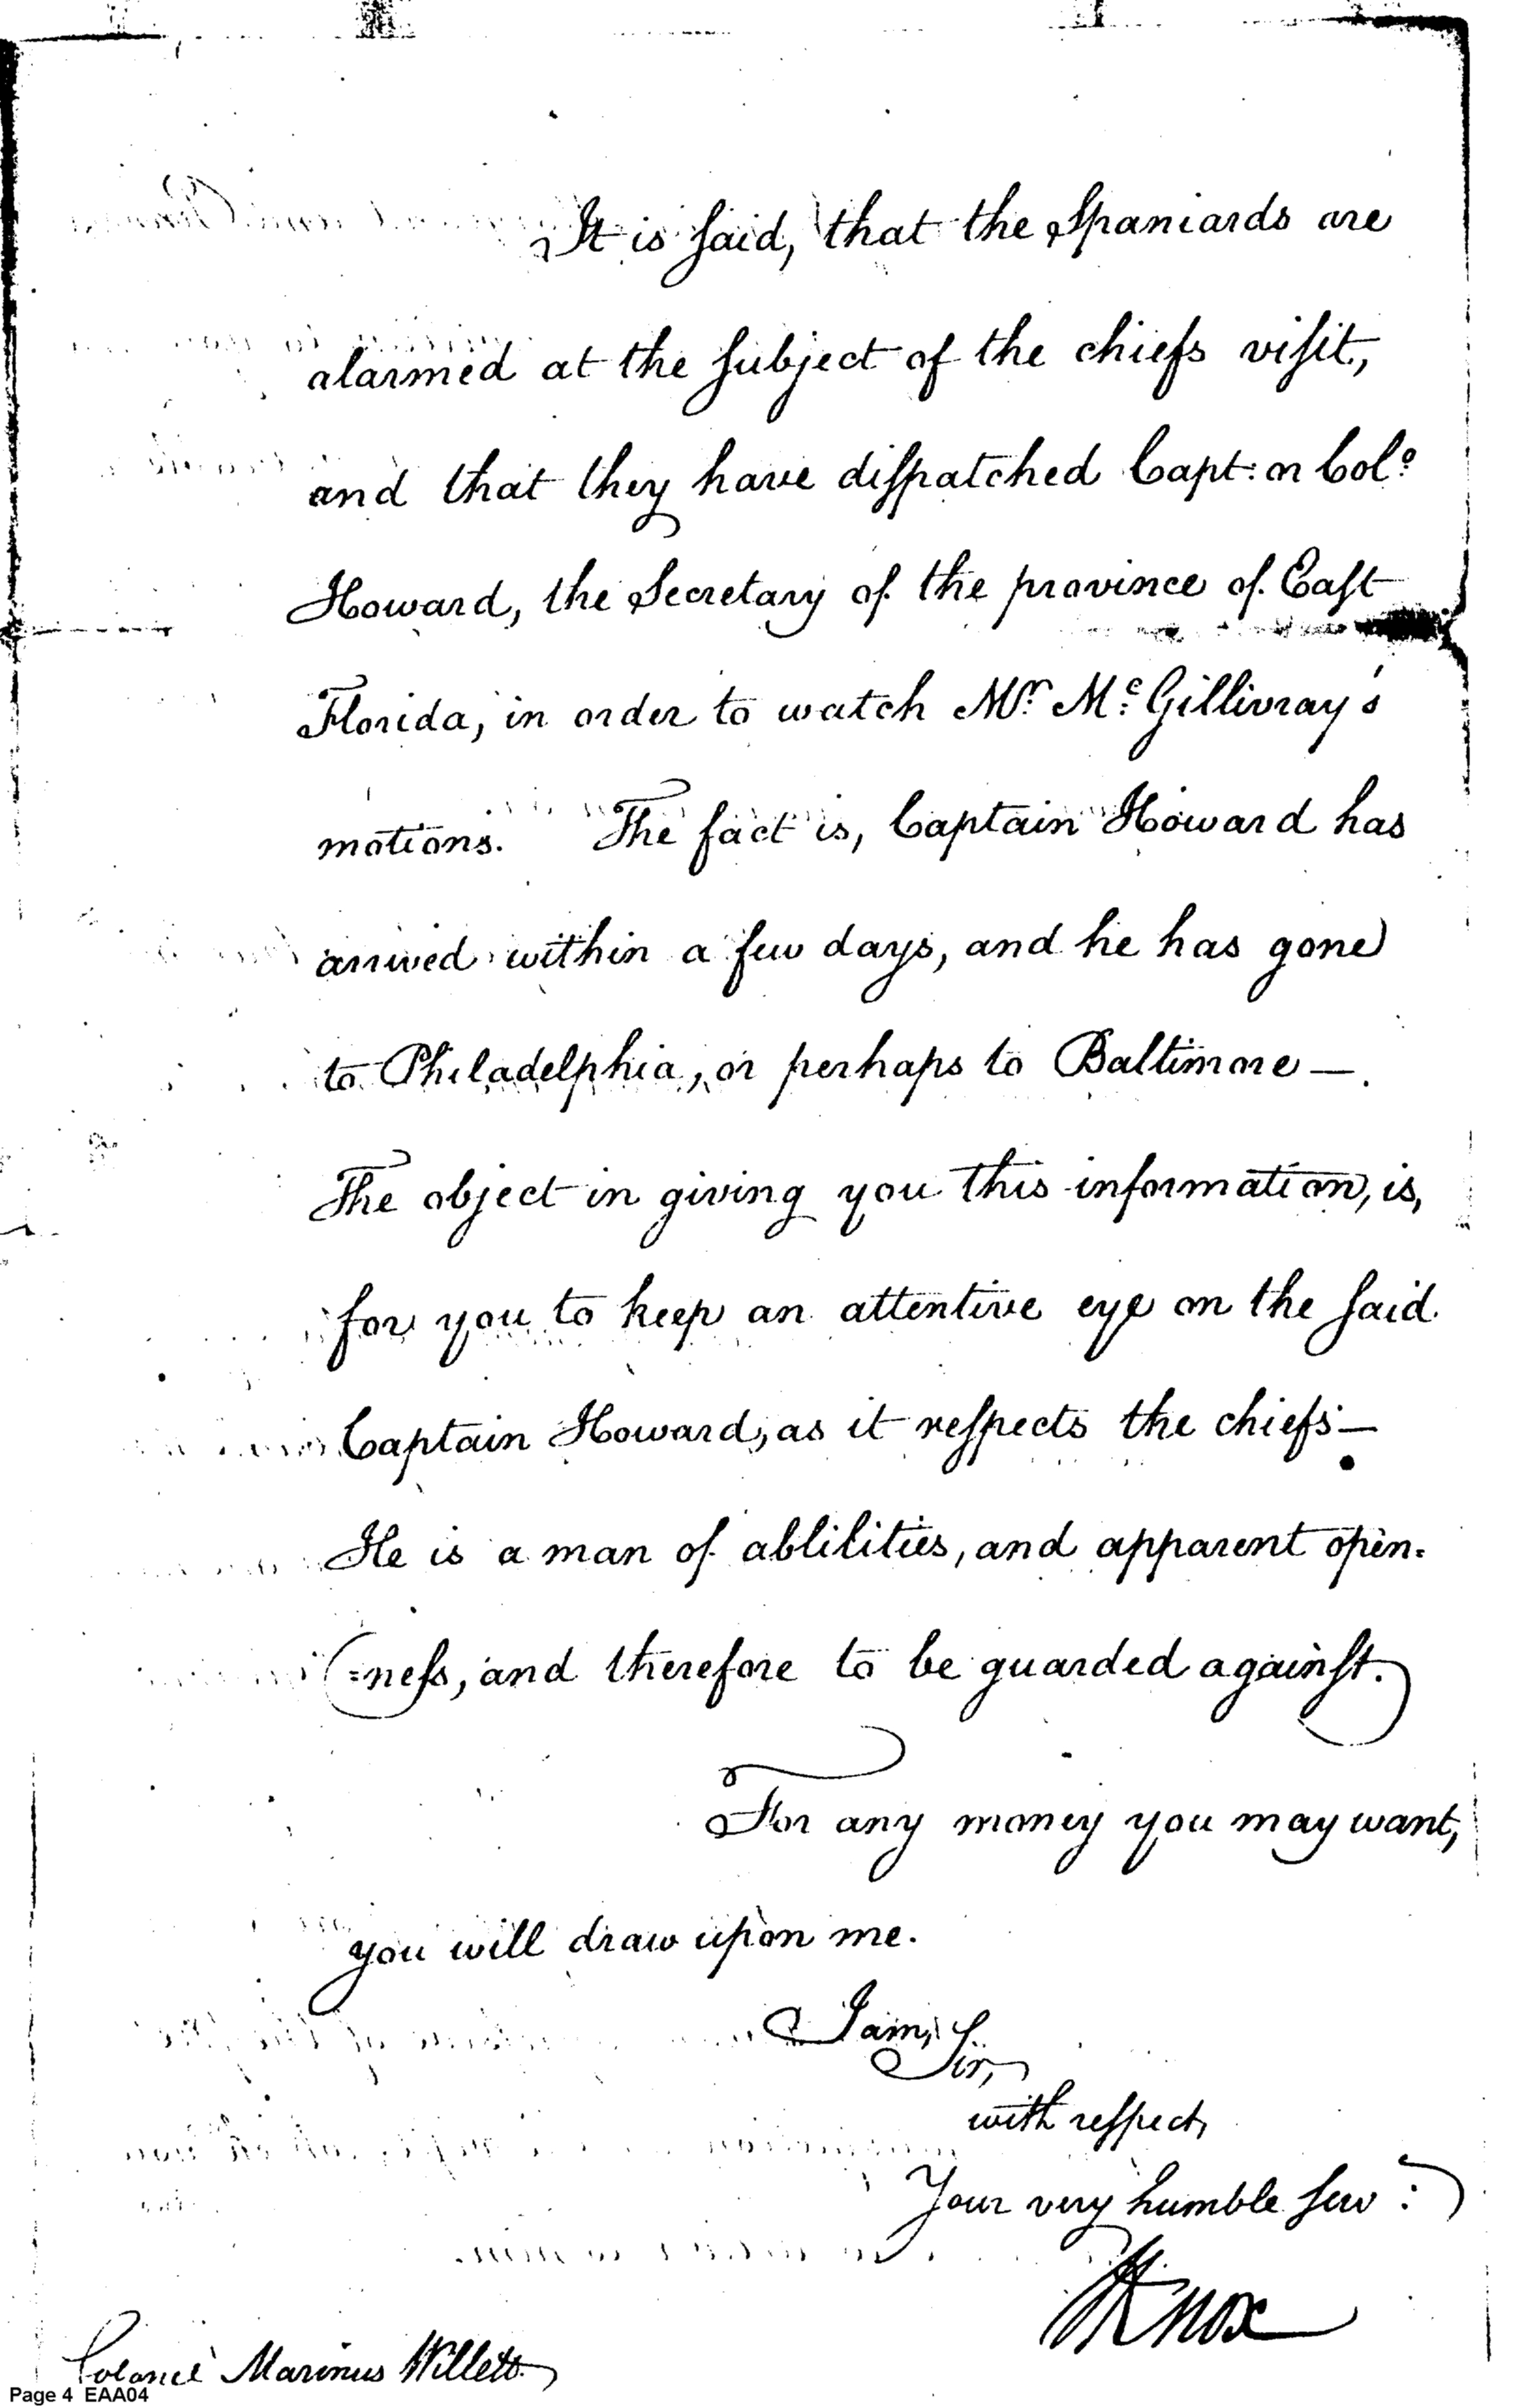 It is said, that the Spaniards are
alarmed at the subject of the chiefs visit,
and that they have dispatched Capt: or Colo
Howard, the Secretary of the province of East
Florida, in order to watch Mr. Mc. Gillivray's
motions. The fact is, Captain Howard has
arrived within a few days, and he has gone
to Philadelphia, or perhaps to Baltimore —.
The object in giving you this information, is,
for you to keep an attentive eye on the said
Captain Howard, as it respects the chiefs —.
He is a man of ablilities, and apparent open=
=ness, and therefore to be guarded against.
For any money you may want,
you will draw upon me.
I am, Sir,
with respect,
Your very humble serv:
HKnox
Colonel Marinus Willett.
Page 4 EAA04